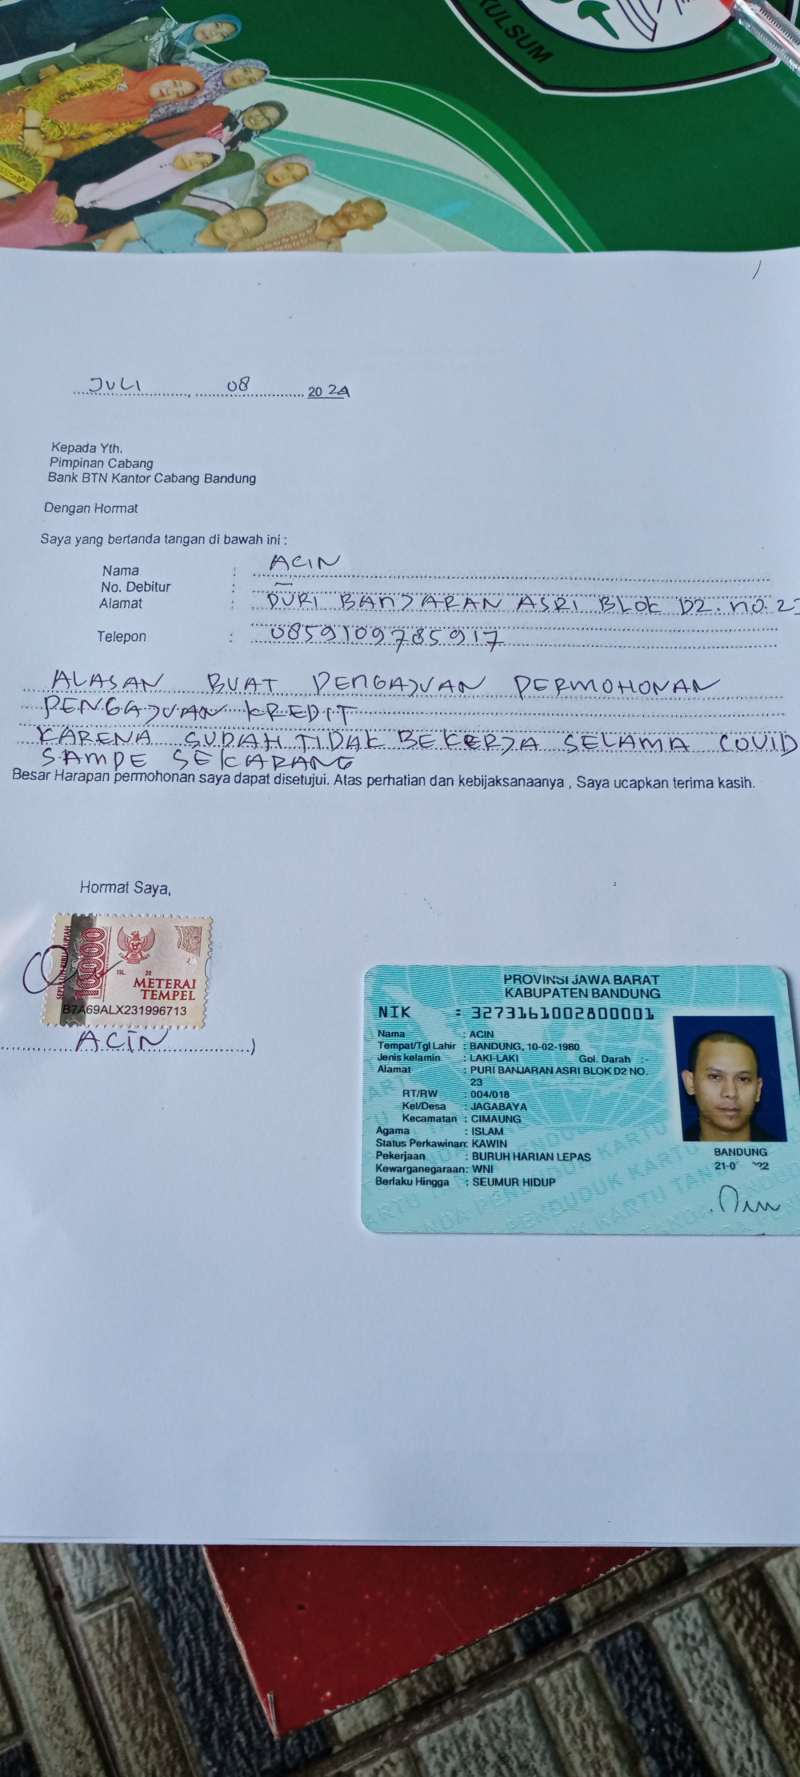 RULSUM
JULI, 08 2024
Kepada Yth.
Pimpinan Cabang
Bank BTN Kantor Cabang Bandung
Dengan Hormat
Saya yang bertanda tangan di bawah ini :
Nama : ACIN
No. Debitur : –
Alamat : PURI BANJARAN ASRI BLOK D2. NO. 23
Telepon : 0859109785917
ALASAN BUAT PENGAJUAN PERMOHONAN
PENGAJUAN KREDIT
KARENA SUDAH TIDAK BEKERJA SELAMA COVID
SAMPE SEKARANG
Besar Harapan permohonan saya dapat disetujui. Atas perhatian dan kebijaksanaanya , Saya ucapkan terima kasih.
Hormat Saya,
SEPULUH RIBU RUPIAH
10000
TGL. 20
METERAI
TEMPEL
B7A69ALX231996713
ACIN )
PROVINSI JAWA BARAT
KABUPATEN BANDUNG
NIK : 3273161002800001
Nama : ACIN
Tempat/Tgl Lahir : BANDUNG, 10-02-1980
Jenis kelamin : LAKI-LAKI Gol. Darah :-
Alamat : PURI BANJARAN ASRI BLOK D2 NO.
23
RT/RW : 004/018
Kel/Desa : JAGABAYA
Kecamatan : CIMAUNG
Agama : ISLAM
Status Perkawinan: KAWIN
Pekerjaan : BURUH HARIAN LEPAS
Kewarganegaraan: WNI
Berlaku Hingga : SEUMUR HIDUP
BANDUNG